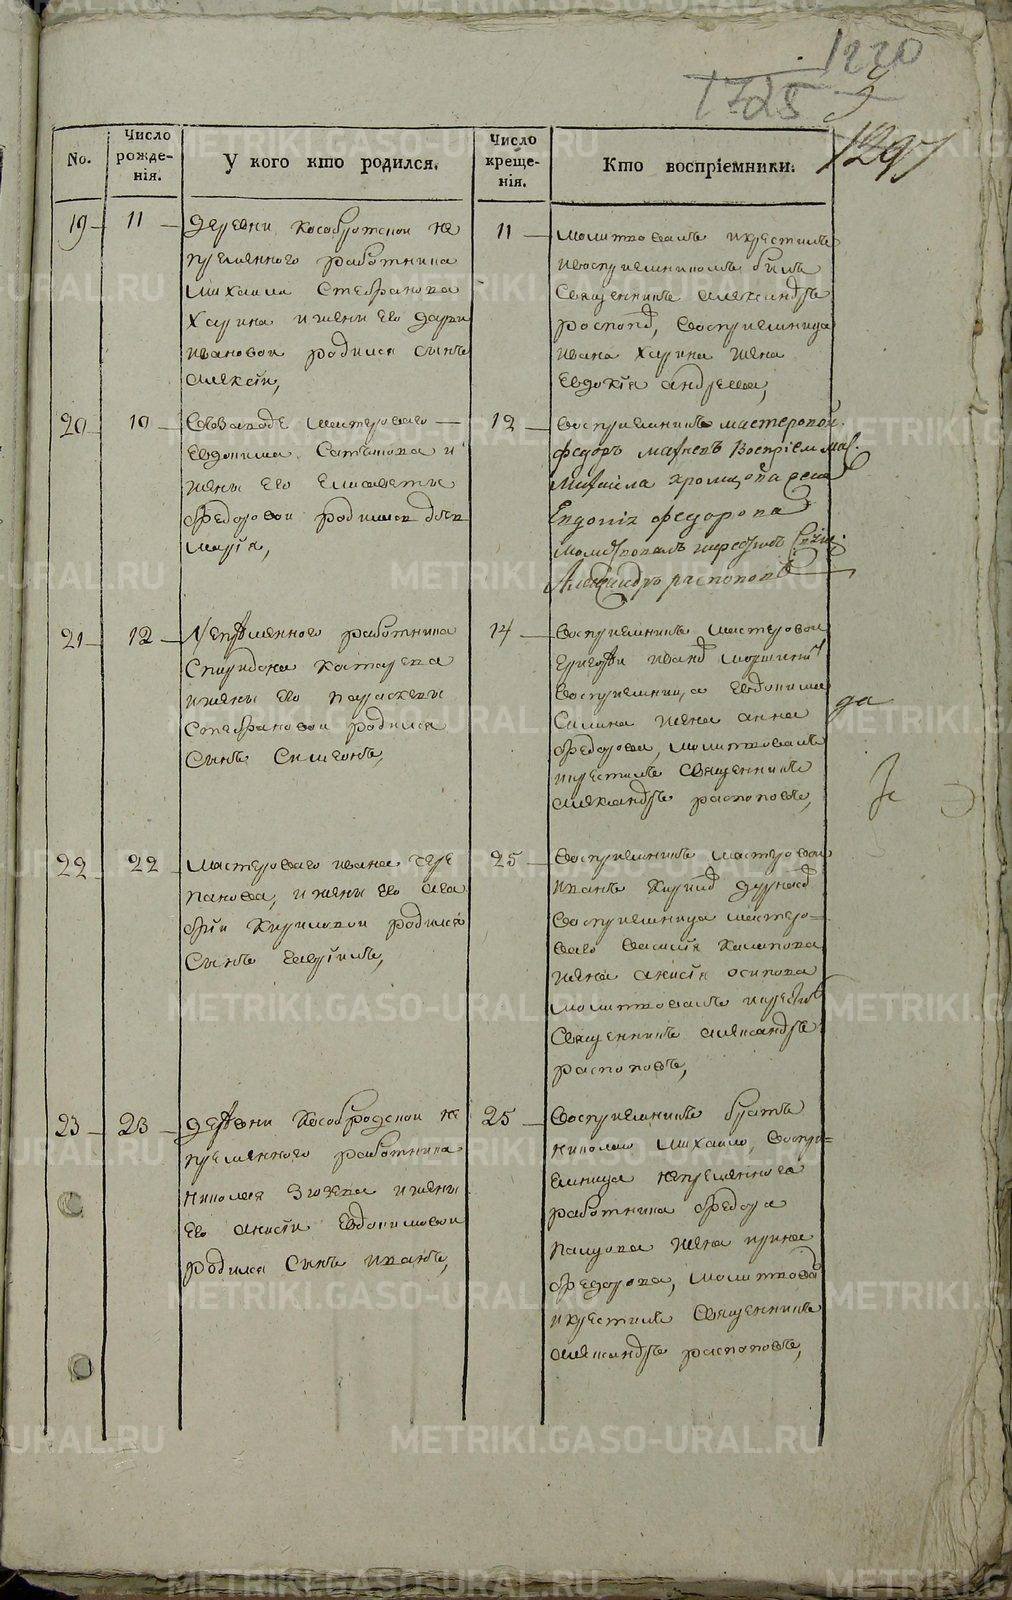 1220
1725
1297
No.
Число рожде-нія.
У кого кто родился.
Число креще-нія.
Кто воспріемники.
19
11
деревни Кособротской не
пременного работника
михаила Стефанова
Харина и жены его дарьи
ивановой родился сынъ
алексѣй,
11
молитвовалъ и крестилъ
и воспріемникомъ былъ
Священникъ александръ
распопов, воспріемница
ивана Харина жена
евдокія андреева,
20
10
Въ заводе мастероваго
Евдокима
жены его Елисаветы
федоровой родилась дочь
марія,
12
воспріемникъ мастеровой
федоръ махневъ Воспріем мас.
михаила
Евдокія федорова
молитвовалъ и крестилъ Свящ.
Александръ распоповъ
21
12
Непременного работника
Спиридона
и жены его параскевы
Стефановой родился
сынъ Симеонъ,
14
воспріемникъ мастеровой
григорей иванов
воспріемница Евдокима
жена анна
федорова, молитвовалъ
и крестилъ Священникъ
александръ распоповъ,
да
22
22
мастероваго ивана чере
панова, и жены его ага
фьи Кириловой родился
Сынъ
25
воспріемникъ мастеровой
иванъ
воспріемница мастеро-
ваго василія
жена анисія осипова
молитвовалъ и крестилъ
Священникъ александръ
распоповъ,
23
23
деревни Кособродской не
пременного работника
николая Зюзева и жены
его анисьи Евдокимовой
родился Сынъ иванъ,
25
воспріемникъ братъ
николаю михайло, воспрі=
емница непременного
работника федора
жена ирина
федорова, молитвовал
и крестилъ Священникъ
александръ распоповъ,
METRIKI.GASO-URAL.RU